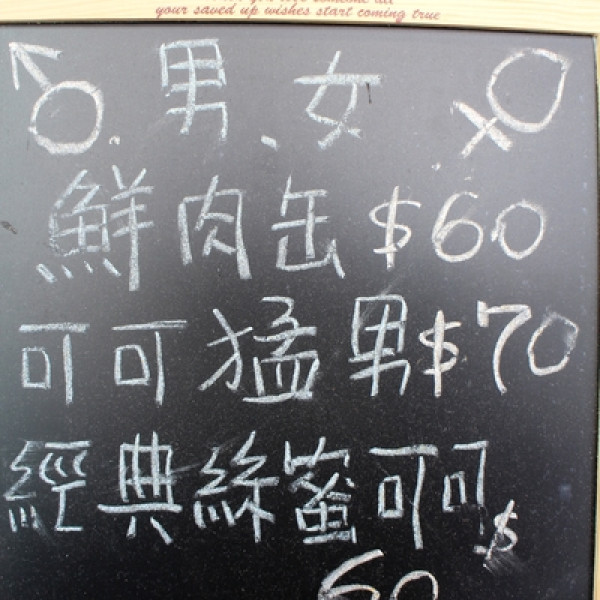 your saved up wishes start coming true
♂.男、女 ♀
鮮肉缶$60
可可猛男$70
經典絲蜜可可$
60